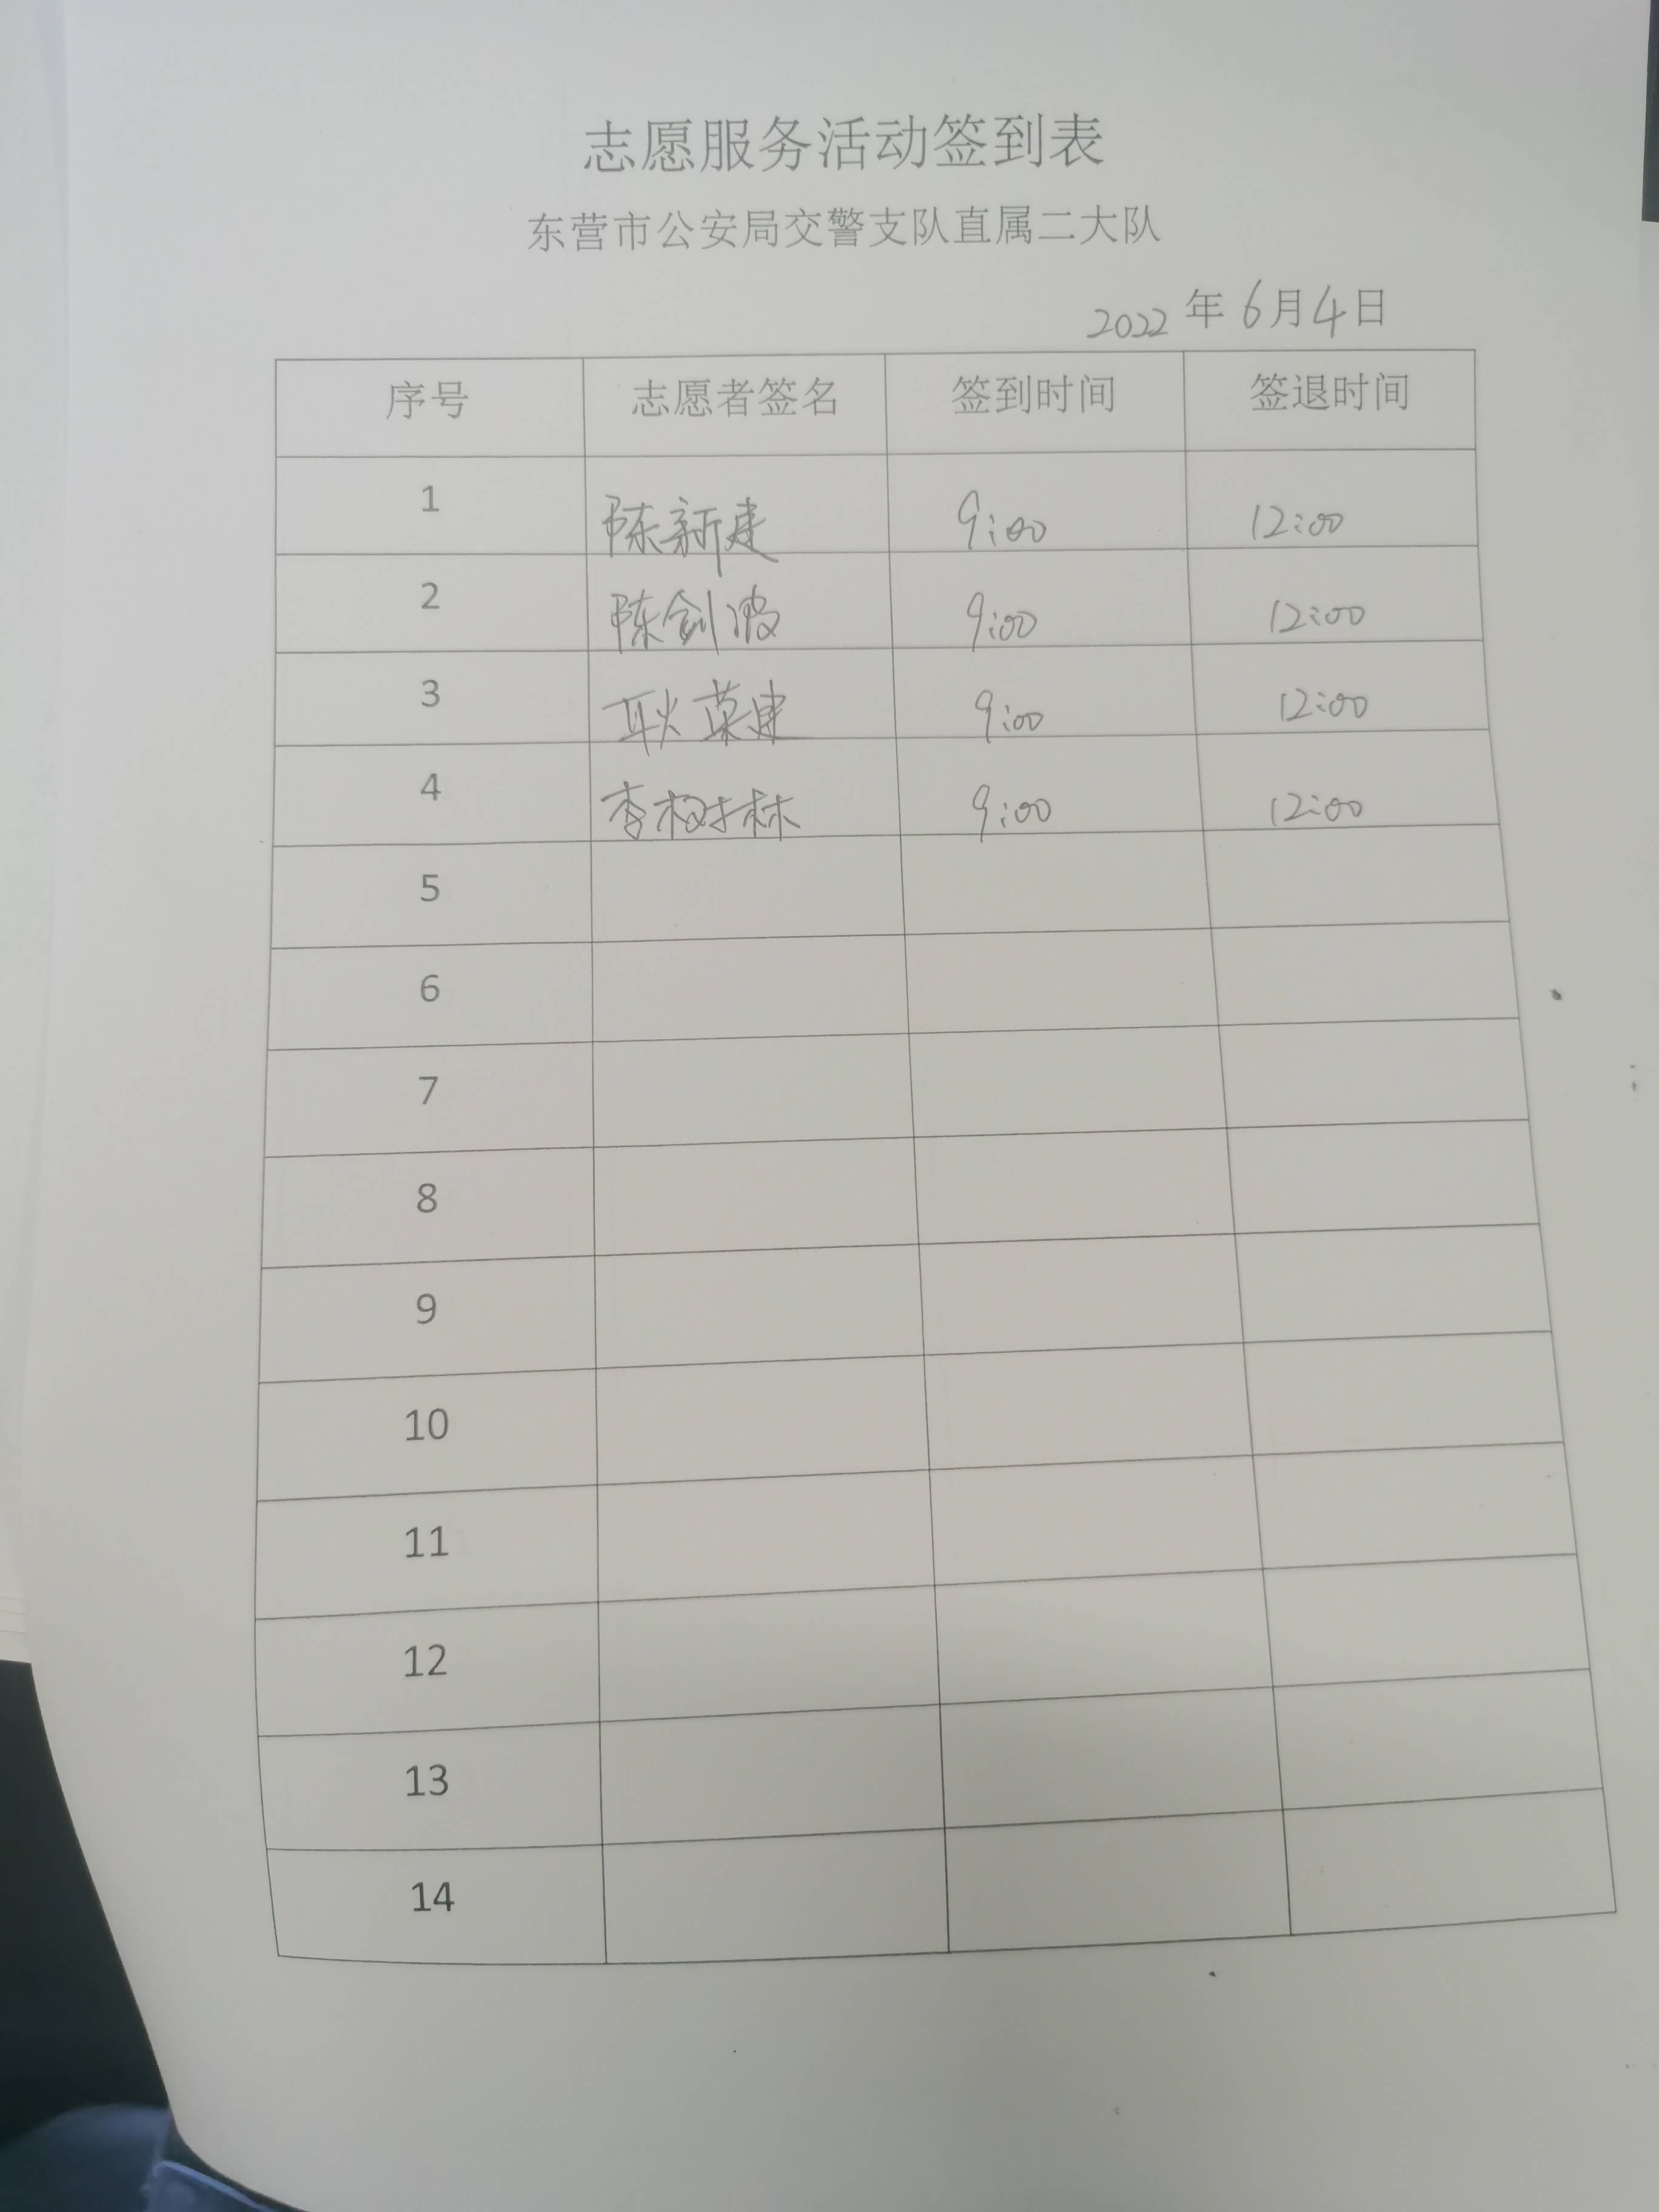 志愿服务活动签到表
东营市公安局交警支队直属二大队
2022年6月4日
序号 志愿者签名 签到时间 签退时间
1 陈新建 9:00 12:00
2 陈剑波 9:00 12:00
3 耿荣建 9:00 12:00
4 李树林 9:00 12:00
5
6
7
8
9
10
11
12
13
14